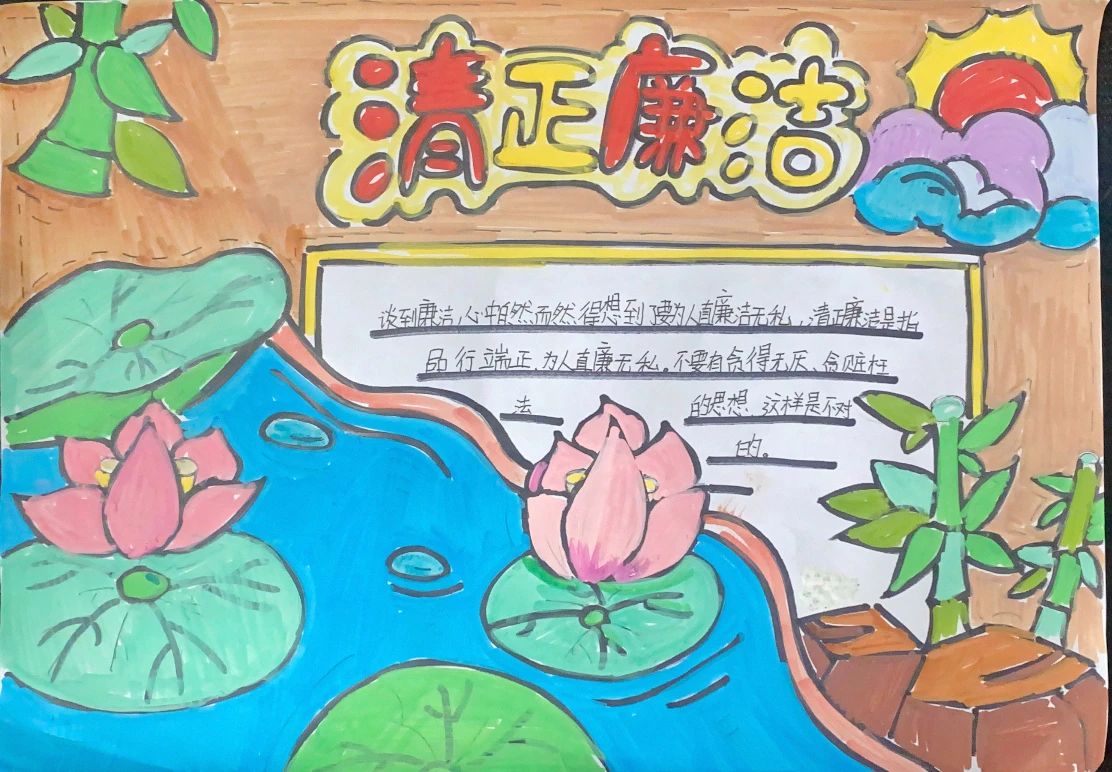 清正廉洁
谈到廉洁,心中自然而然得想到了要为人直廉洁无私,清正廉洁是指
品行端正,为人直廉无私。不要有贪得无厌、贪赃枉
法 的思想,这样是不对
的。